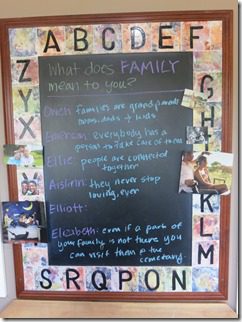 A B C D E F
G
H
I
K
L
M
N
O
P
Q
R
S
X
Y
Z
What does FAMILY
mean to you?
families are grandparents
moms, dads + kids
everybody has a
person to take care of them
Ellie: people are connected
together
Aislinn: they never stop
loving, ever
Elliott:
Elizabeth: even if a part of
your family is not there you
can visit them @ the
cemetary.